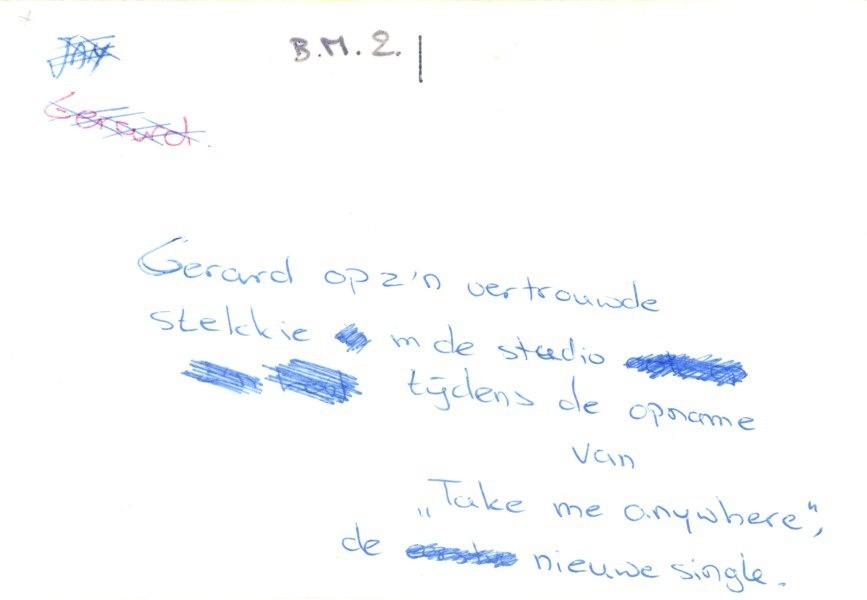 JAN
B.M. 2.
Gerard.
Gerard op z'n vertrouwde
stekkie in de studio
tijdens de opname
van
„Take me anywhere",
de nieuwe single.